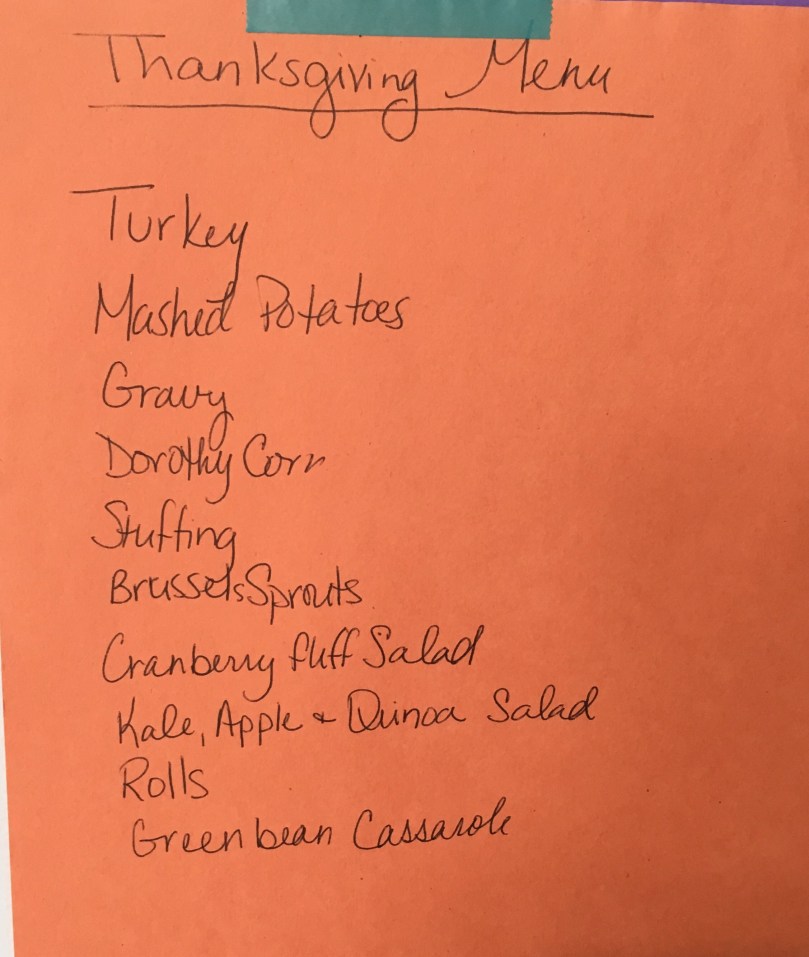 Thanksgiving Menu
Turkey
Mashed Potatoes
Gravy
Dorothy Corn
Stuffing
Brussels Sprouts
Cranberry fluff Salad
Kale, Apple + Quinoa Salad
Rolls
Greenbean Cassarole